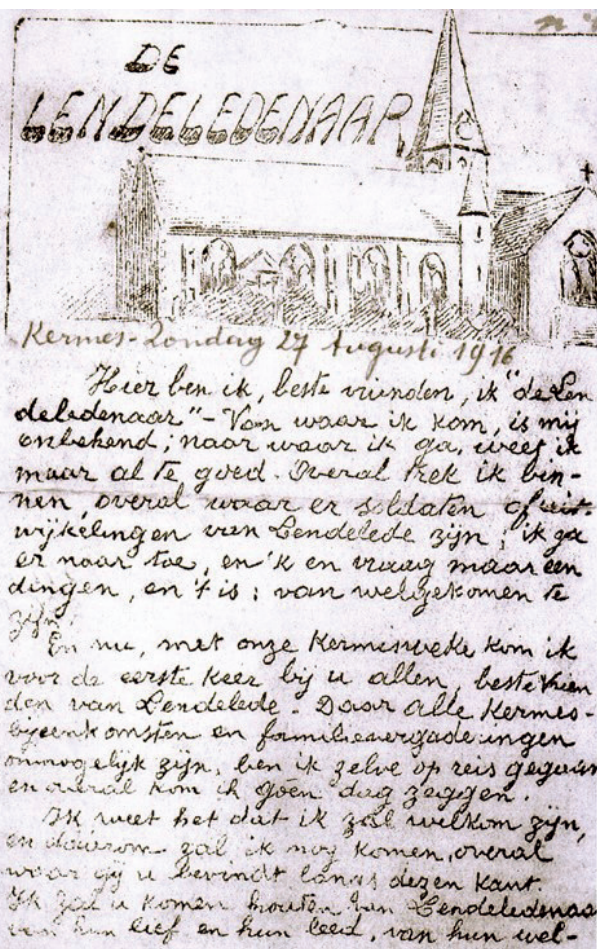 DE
LENDELEDENAAR
Kermes-Zondag 27 Augusti 1916
Hier ben ik, beste vrienden, ik "de Len
deledenaar" - Van waar ik kom, is mij
onbekend; naar waar ik ga, weet ik
maar al te goed. Overal trek ik bin-
nen, overal waar er soldaten of uit-
wijkelingen van Lendelede zijn; ik ga
er naar toe, en 'k en vraag maar een
dingen, en 't is: van welgekomen te
zijn.
En nu, met onze Kermesweke kom ik
voor de eerste keer bij u allen, beste vrien
den van Lendelede. Daar alle Kermes-
bijeenkomsten en familievergaderingen
onmogelijk zijn, ben ik zelve op reis gegaan
en overal kom ik goên dag zeggen.
Ik weet het dat ik zal welkom zijn,
en daarom zal ik nog komen, overal
waar gij u bevindt langs dezen kant.
Ik zal u komen kouten van Lendeledenaa
van hun lief en hun leed, van hun wel-